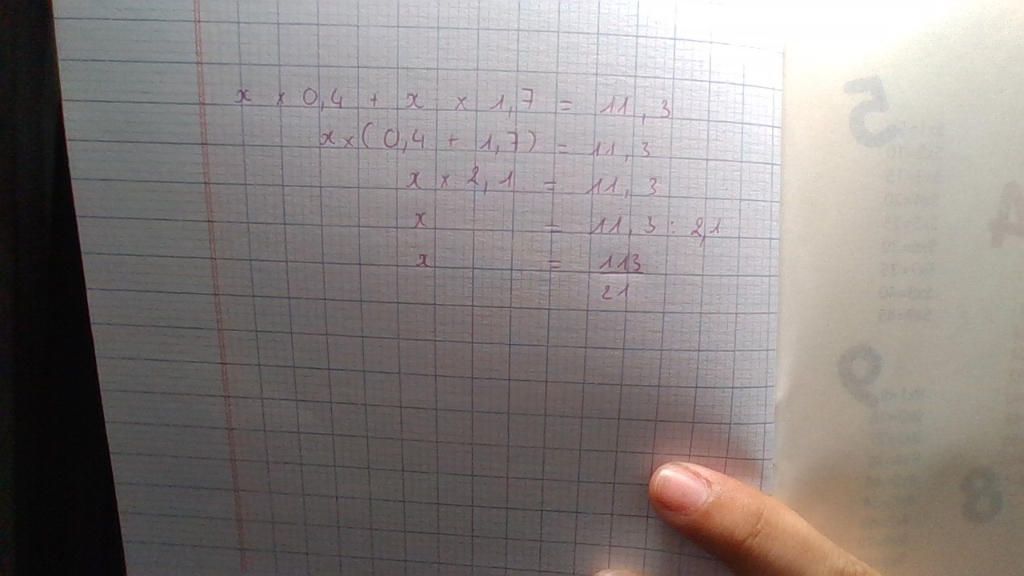 x × 0,4 + x × 1,7 = 11,3
x × (0,4 + 1,7) = 11,3
x × 2,1 = 11,3
x = 11,3 : 2,1
x = 113
21
5
9
8